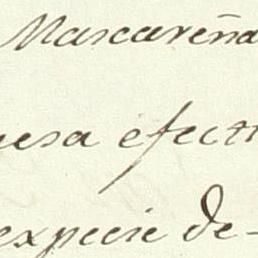 Mascareña
esa efecti
expecie de-